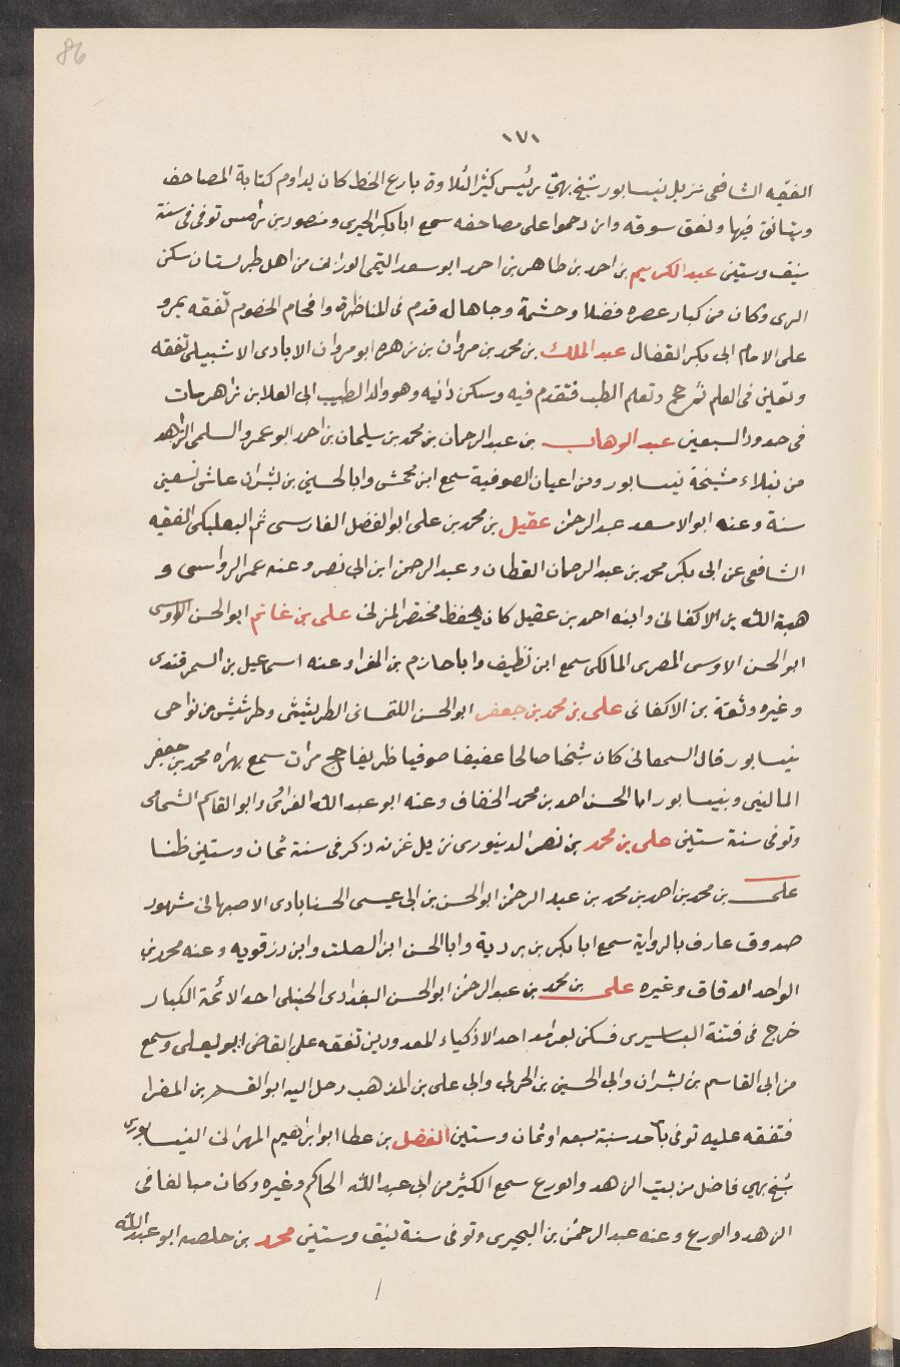 86
١٧١
الفقيه الشافعى نزيل نيسابور شيخ بهىّ رئيس كثير التلاوة بارع الخط كان يداوم كتابة المصاحف
ويتانق فيها ونفق سوقه وازدحموا على مصاحفه سمع ابا بكر الحيرى ومنصور بن رامس توفى فى سنة
نيف وستين عبد الكريم بن احمد بن طاهر بن احمد ابو سعد التيمى الوزان من اهل طبرستان سكن
الرى وكان من كبار عصره فضلا وحشمة وجاها له قدم فى المناظرة وافحام الخصوم تفقه بمرو
على الامام ابى بكر القفال عبد الملك بن محمد بن مروان بن زهر ابو مروان الايادى الاشبيلى تفقه
وتفنن فى العلم ثم حج وتعلم الطب فتقدم فيه وسكن دانيه وهو والد الطبيب ابى العلا بن زاهر مات
فى حدود السبعين عبد الوهاب بن عبد الرحمان بن محمد بن سليمان بن احمد ابو عمرو السلمى الزاهد
من نبلاء مشيخة نيسابور ومن اعيان الصوفية سمع ابن محمش وابا الحسين بن بشران عاش تسعين
سنة وعنه ابو الاسعد عبد الرحمن عقيل بن محمد بن على ابو الفضل الفارسى ثم البعلبكى الفقيه
الشافعى عن ابى بكر محمد بن عبد الرحمان القطان وعبد الرحمن ابن ابى نصر وعنه عمر الرواسى و
هبة الله بن الاكفانى وابنه احمد بن عقيل كان يحفظ مختصر المزنى على بن غانم ابو الحسن الاوسى
ابو الحسن الاوسى المصرى المالكى سمع ابن نظيف وابا حازم بن الفرا وعنه اسماعيل بن السمرقندى
وغيره وثقة بن الاكفانى على بن محمد بن جعفر ابو الحسن اللتحسانى الطريثيثى وطريثيث من نواحى
نيسابور قال السمعانى كان شيخا صالحا عفيفا صوفيا ظريفا حج مرات سمع بهراه محمد بن جعفر
المالينى وبنيسابور ابا الحسن احمد بن محمد الخفاف وعنه ابو عبد الله الفراوى وابو القاسم الشحامى
وتوفى سنة ستين على بن محمد بن نصر الدينورى نزيل غزنه ذكر فى سنة ثمان وستين ظنا
على بن محمد بن احمد بن محمد بن عبد الرحمن ابو الحسن بن ابى عيسى الحسنابادى الاصبهانى مشهور
صدوق عارف بالرواية سمع ابا بكر بن بردية وابا الحسن ابن الصلت وابن رزقويه وعنه محمد بن
الواحد الدقاق وغيره على بن محمد بن عبد الرحمن ابو الحسن البغدادى الحنبلى احد الائمة الكبار
خرج فى فتنة البساسيرى فسكن بعد امد احد الاذكياء المعدودين تفقه على القاضى ابو يعلى وسمع
من ابى القاسم بن بشران وابى الحسين بن الحرانى وابى على بن المذهب رحل اليه ابو الفرج بن المفرا
فتفقه عليه توفى بآمد سنة سبعه او ثمان وستين الفضل بن عطا ابو ابراهيم المهرانى النيسابورى
شيخ بهى فاضل من بيت الزهد والورع سمع الكثير من ابى عبد الله الحاكم وغيره وكان مبالغا فى
الزهد والورع وعنه عبد الرحمن بن البحيرى وتوفى سنة نيف وستين محمد بن خلصه ابو عبد الله